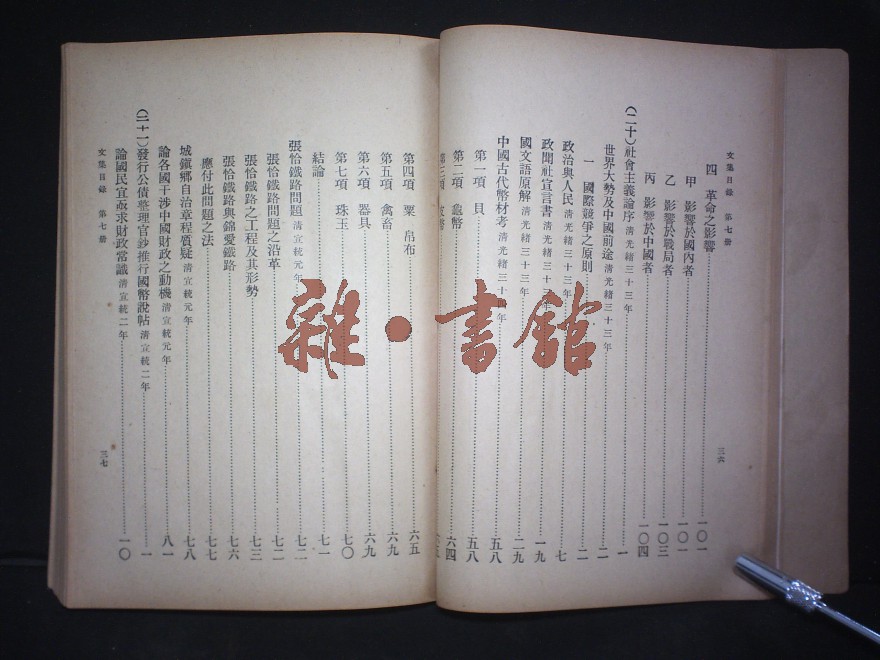 文集目錄 第七册
四 革命之影響……一〇一
甲 影響於國內者……一〇一
乙 影響於戰局者……一〇三
丙 影響於中國者……一〇四
(二十)社會主義論序 清光緒三十三年……一
世界大勢及中國前途 清光緒三十三年……二
一 國際競爭之原則……二
政治與人民 清光緒三十三年……七
政聞社宣言書 清光緒三十三年……一九
國文語原解 清光緒三十三年……二九
中國古代幣材考 清光緒三十年……五八
第一項 貝……五八
第二項 龜幣……六四
第三項 皮幣
三六
第四項 粟 帛布……六五
第五項 禽畜……六九
第六項 器具……六九
第七項 珠玉……七〇
結論……七一
張恰鐵路問題 清宣統元年……七二
張恰鐵路問題之沿革……七二
張恰鐵路之工程及其形勢……七三
張恰鐵路與錦愛鐵路……七六
應付此問題之法……七七
城鎮鄉自治章程質疑 清宣統元年……七八
論各國干涉中國財政之動機 清宣統元年……八一
(二十一)發行公債整理官鈔推行國幣說帖 清宣統二年……一
論國民宜亟求財政常識 清宣統二年……一〇
文集目錄 第七册
三七
雜·書館